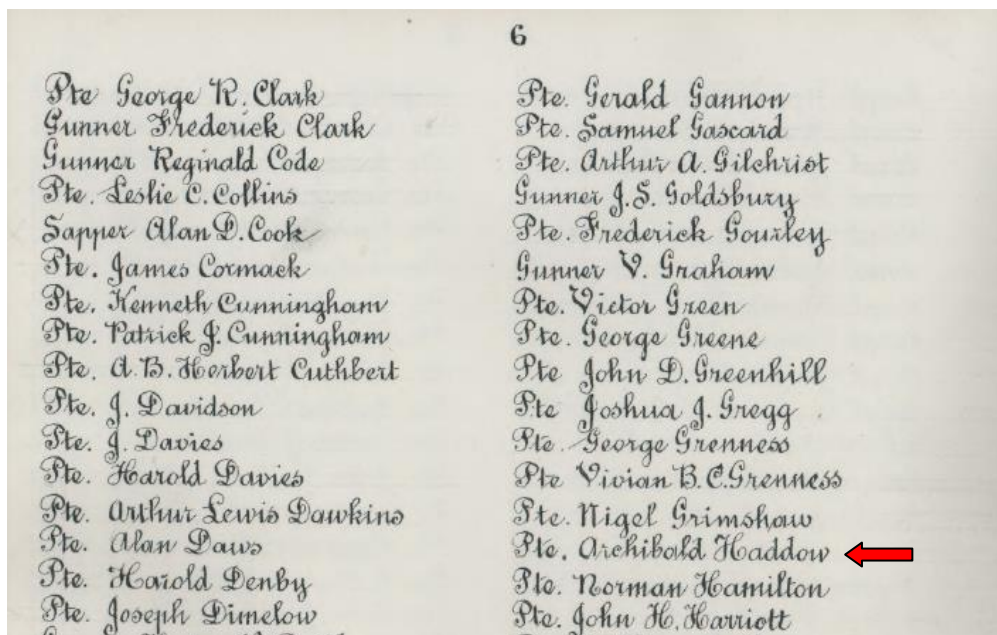 6
Pte George R. Clark
Gunner Frederick Clark
Gunner Reginald Code
Pte. Leslie C. Collins
Sapper Alan D. Cook
Pte. James Cormack
Pte. Kenneth Cunningham
Pte. Patrick J. Cunningham
Pte. A. B. Herbert Cuthbert
Pte. J. Davidson
Pte. J. Davies
Pte. Harold Davies
Pte. Arthur Lewis Dawkins
Pte. Alan Daws
Pte. Harold Denby
Pte. Joseph Dimelow
Pte. Gerald Gannon
Pte. Samuel Gascard
Pte. Arthur A. Gilchrist
Gunner J. S. Goldsbury
Pte. Frederick Gourley
Gunner V. Graham
Pte. Victor Green
Pte. George Greene
Pte John D. Greenhill
Pte Joshua J. Gregg
Pte. George Grenness
Pte Vivian B. C. Grenness
Pte. Nigel Grimshaw
Pte. Archibald Haddow
Pte. Norman Hamilton
Pte. John H. Harriott